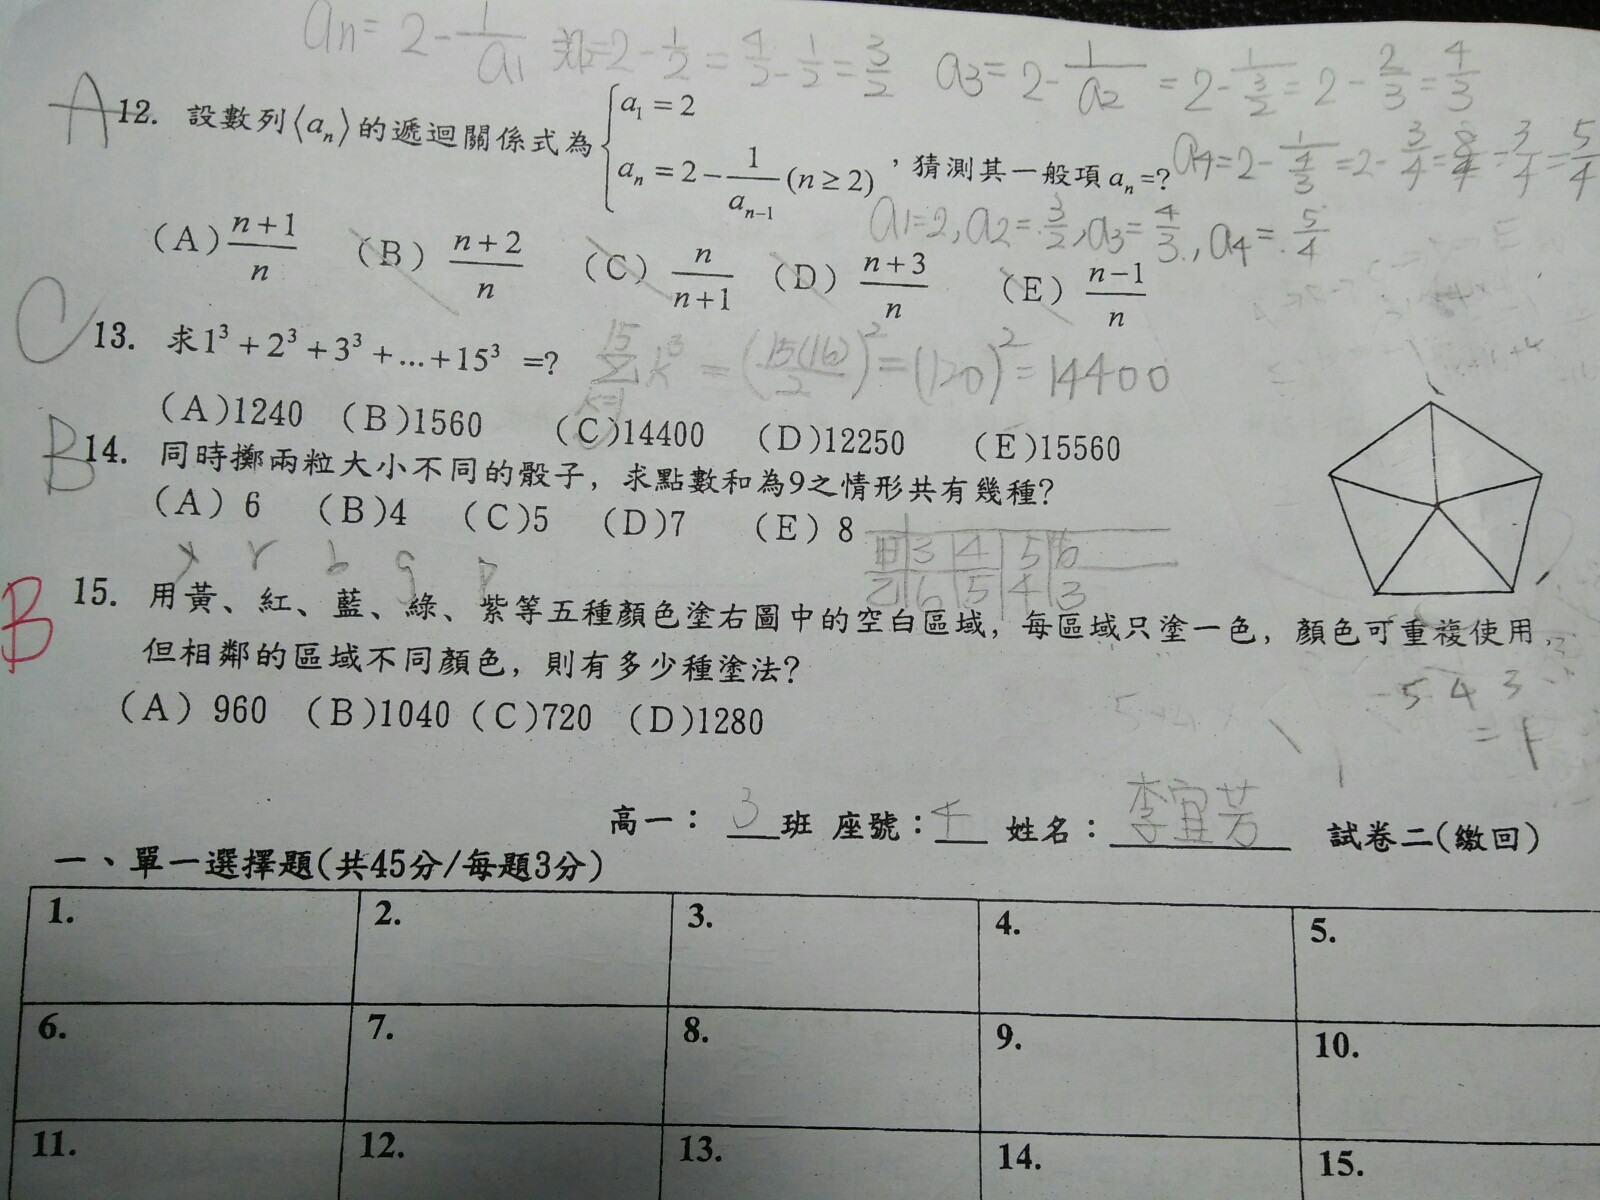 an = 2 - 1/a1 = 2 - 1/2 = 4/2 - 1/2 = 3/2  a3 = 2 - 1/a2 = 2 - 1/(3/2) = 2 - 2/3 = 4/3
A 12. 設數列⟨an⟩的遞迴關係式為 { a1 = 2
an = 2 - 1/an-1 (n ≥ 2) ，猜測其一般項an =?
a4 = 2 - 1/(4/3) = 2 - 3/4 = 8/4 - 3/4 = 5/4
a1=2, a2=3/2, a3=4/3, a4=5/4
(A) n+1/n (B) n+2/n (C) n/n+1 (D) n+3/n (E) n-1/n
C 13. 求1³ + 2³ + 3³ + ... + 15³ =? 15 Σ k=1 k³ = (15(16)/2)² = (120)² = 14400
(A)1240 (B)1560 (C)14400 (D)12250 (E)15560
B 14. 同時擲兩粒大小不同的骰子，求點數和為9之情形共有幾種?
(A) 6 (B)4 (C)5 (D)7 (E) 8
甲 3 4 5 6
乙 6 5 4 3
y r b g p
B 15. 用黃、紅、藍、綠、紫等五種顏色塗右圖中的空白區域，每區域只塗一色，顏色可重複使用，
但相鄰的區域不同顏色，則有多少種塗法?
5 4 3
(A) 960 (B)1040 (C)720 (D)1280
高一： 3 班 座號：4 姓名：李宜芳 試卷二(繳回)
一、單一選擇題(共45分/每題3分)
1. 2. 3. 4. 5.
6. 7. 8. 9. 10.
11. 12. 13. 14. 15.